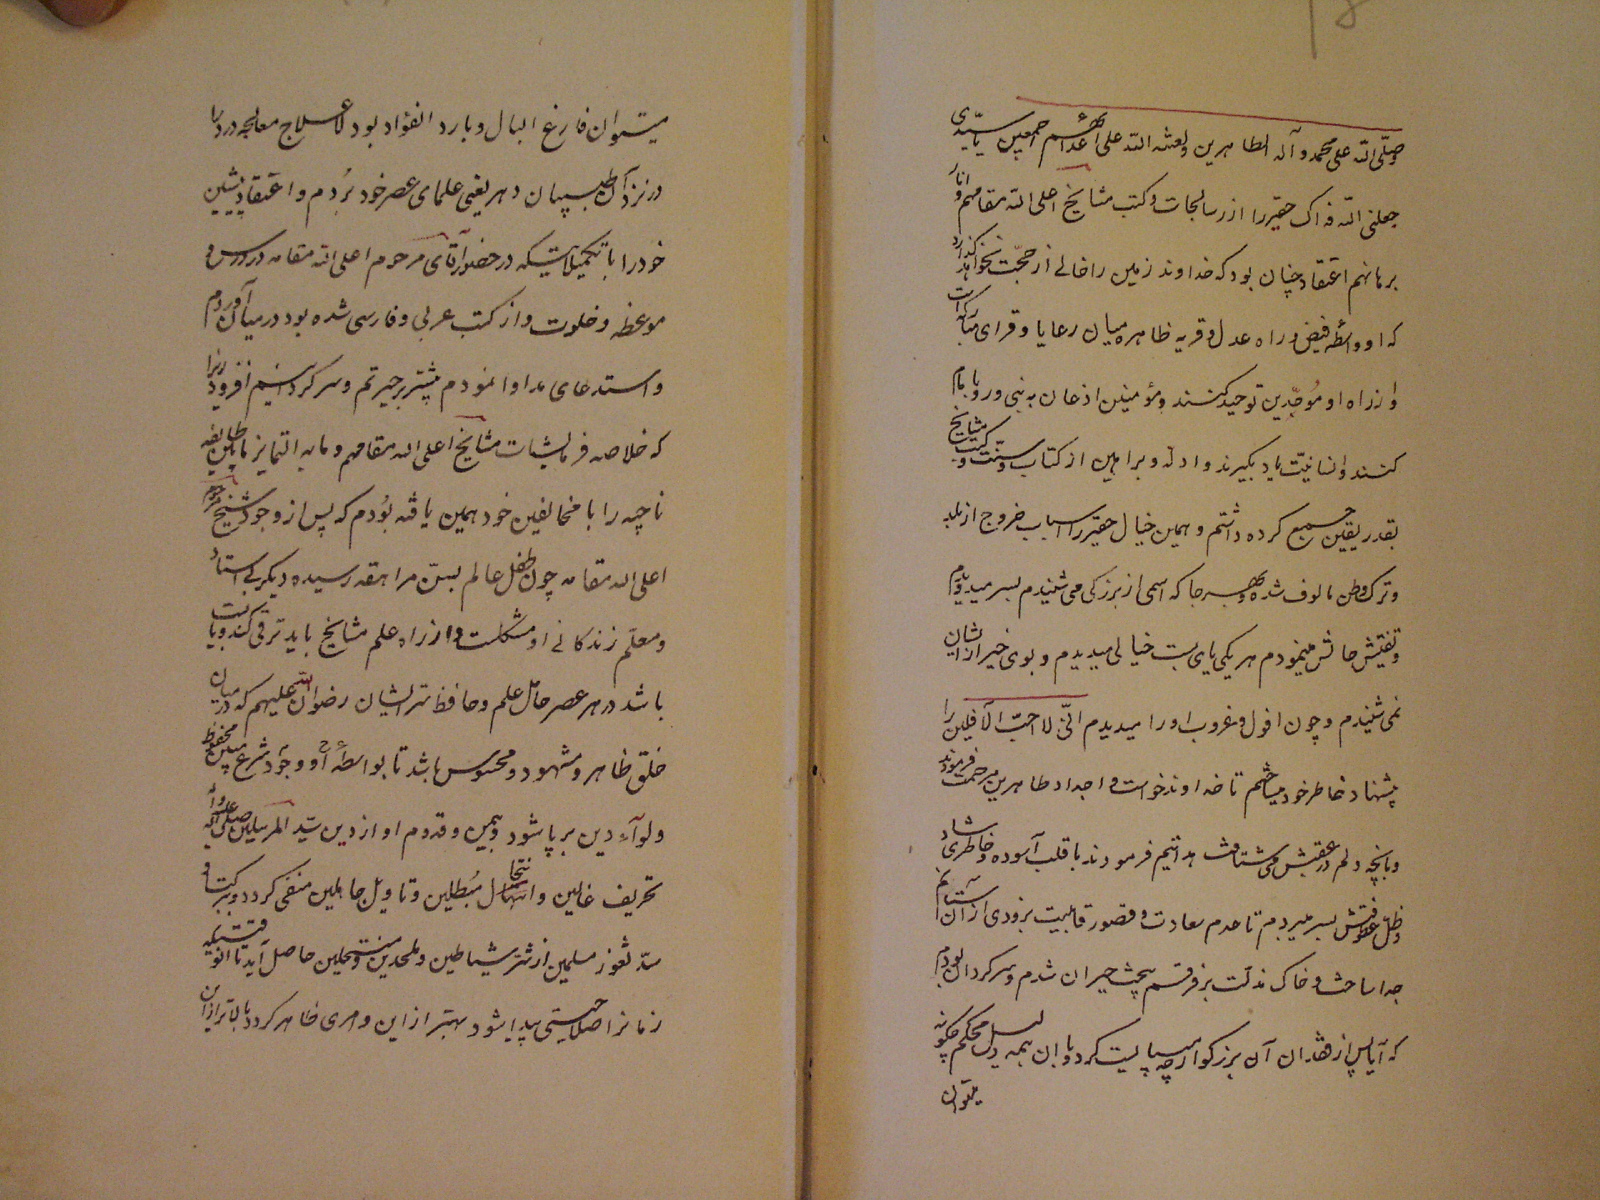 وصلّی الله علی محمد و آله الطاهرین ولعنة الله علی اعدائهم اجمعین یا سیّدی
جعلنی الله فداک حقیر را از رسالجات و کتب مشایخ اعلی الله مقامهم و انار
برهانهم اعتقاد چنان بود که خداوند زمین را خالی از حجّت نخواهد گذارد
که او واسطه فیض و راه عدل و قریه ظاهره میان رعایا و قرای مبارکه است
و از راه او موحّدین توحید کنند و مؤمنین اذعان به نبی و رو بامام
کنند و انسانیّت یاد بگیرند و ادله و براهین از کتاب و سنّت و کتب مشایخ
بقدر یقین جمیع کرده داشتم و همین خیال حقیر را سبب خروج از بلد
و ترک وطن مالوف شده و بهر جا که اسمی از بزرگی می شنیدم بسر میدویدم
و تفتیش حالش مینمودم هر یکی پای بست خیالی میدیدم و بوی خیر از ایشان
نمی شنیدم و چون افول و غروب او را میدیدم انّی لا احبّ الآفلین را
پیشنهاد خاطر خود میساختم تا خداوند خواست و اجداد طاهرین مرحمت فرمودند
و بآنچه دلم در عقبش می شتافت هدایتم فرمودند با قلب آسوده و خاطری شاد
و ظلّ عطوفتش بسر میبردم تا عدم سعادت و قصور قابلیت بزودی از آن آستانم
جدا ساخت و خاک مذلت بر فرقم بیخت حیران شدم و سرگردان بودم
که آیا پس از فقدان آن بزرگوار چه میبایست کرد و با این همه دلیل محکم چگونه
میتوان
میتوان فارغ البال و بارد الفؤاد بود لاعلاج معالجه درد را
در نزد آن طبیبان دهر یعنی علمای عصر خود بُردم و اعتقاد پیشین
خود را با تکمیلاتیکه در حضور آقای مرحوم اعلی الله مقامه در درس و
موعظه و خلوت و از کتب عربی و فارسی شده بود در میان آوردم
و استدعای مداوا نمودم بیشتر بر حیرتم و سرگردانیم افزود زیرا
که خلاصه فرمایشات مشایخ اعلی الله مقامهم و ما به التمایز مابین طایفه
ناجیه را با مخالفین خود همین یافته بُودم که پس از وجود شیخ مرحوم
اعلی الله مقامه چون طفل عالم بسنّ مراهقه رسیده دیگر بی استاد
و معلّم زندگانی او مشکلست و از راه علم مشایخ باید ترقی کند و بایست
باشد در هر عصر حامل علم و حافظ سرّ ایشان رضوان الله علیهم که در میان
خلق ظاهر و مشهود و محسوس باشد تا بواسطهٔ او وجود شرع مبین محفوظ
و لوآء دین بر پا شود و بیمن و قدوم او از دین سیّد المرسلین صلی الله علیه وآله
تحریف غالین و انتحال مُبطلین و تاویل جاهلین منفی گردد و ببرکت او
سدّ ثغور مسلمین از شرّ شیاطین و ملحدین و منتحلین حاصل آید تا آنوقتیکه
زمانرا صلاحیّتی پیدا شود بهتر از این و امری ظاهر گردد بالاتر از این